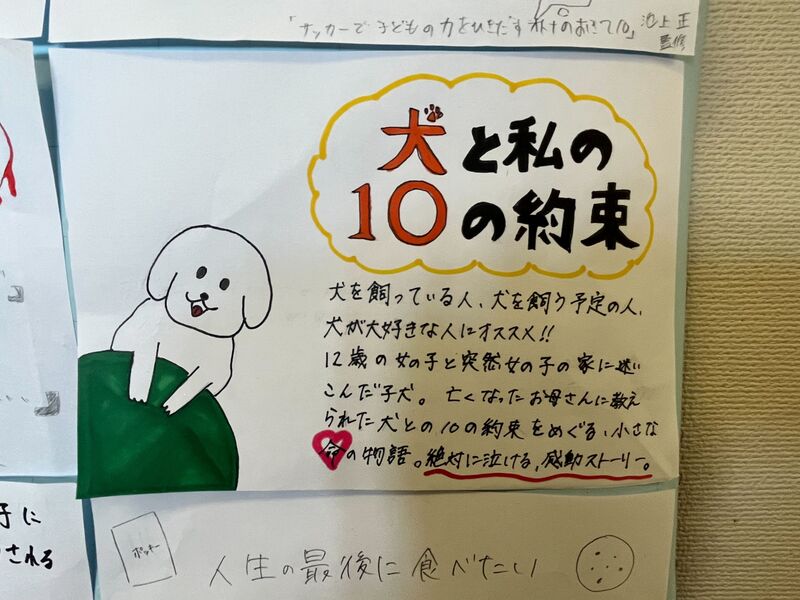 「サッカーで子どもの力をひきだすオトナのおきて10」池上 正
監修
犬と私の
10の約束
犬を飼っている人、犬を飼う予定の人、
犬が大好きな人にオススメ!!
12歳の女の子と突然女の子の家に迷い
こんだ子犬。亡くなったお母さんに教え
られた犬との10の約束をめぐる、小さな
命の物語。絶対に泣ける、感動ストーリー。
子に
される
ポッキー
人生の最後に食べたい